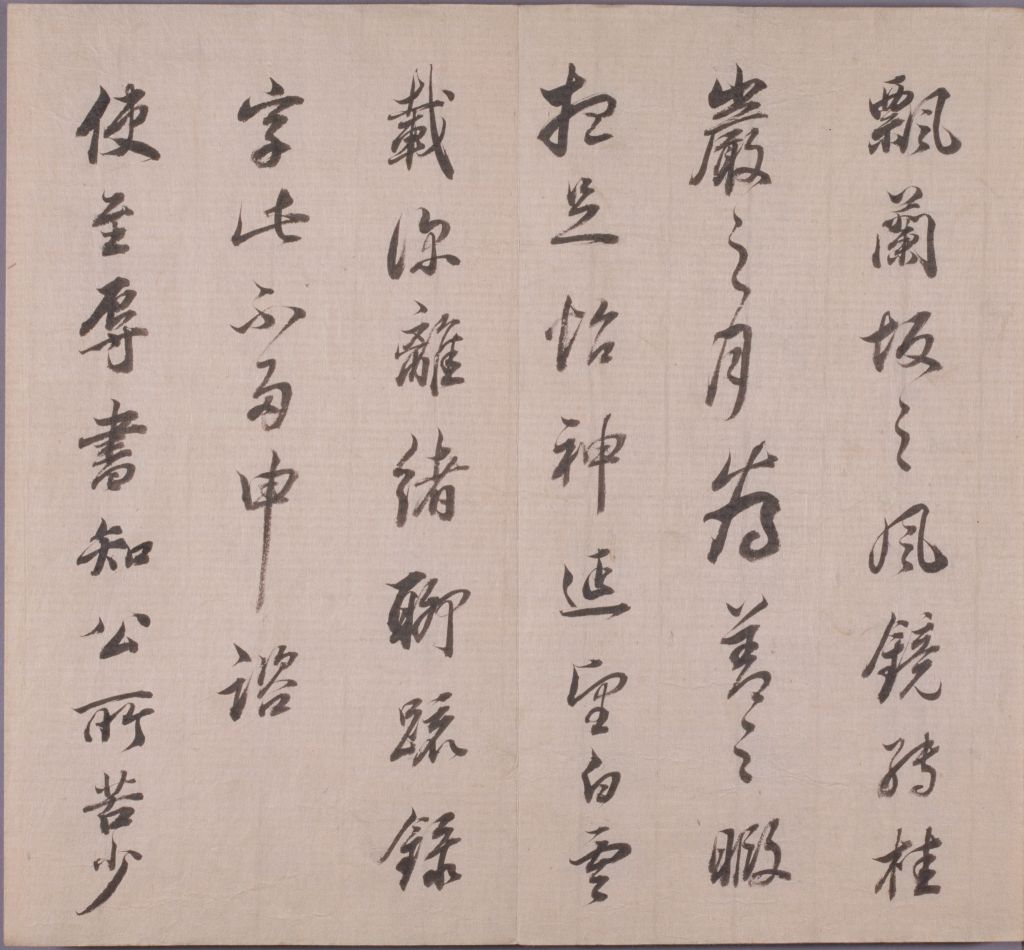 飄蘭坂之風鏡轉桂
巖之月為善之暇
想足怡神延望白雲
載深離緒聊踈錄
字此不多申諮
使至辱書知公所苦少